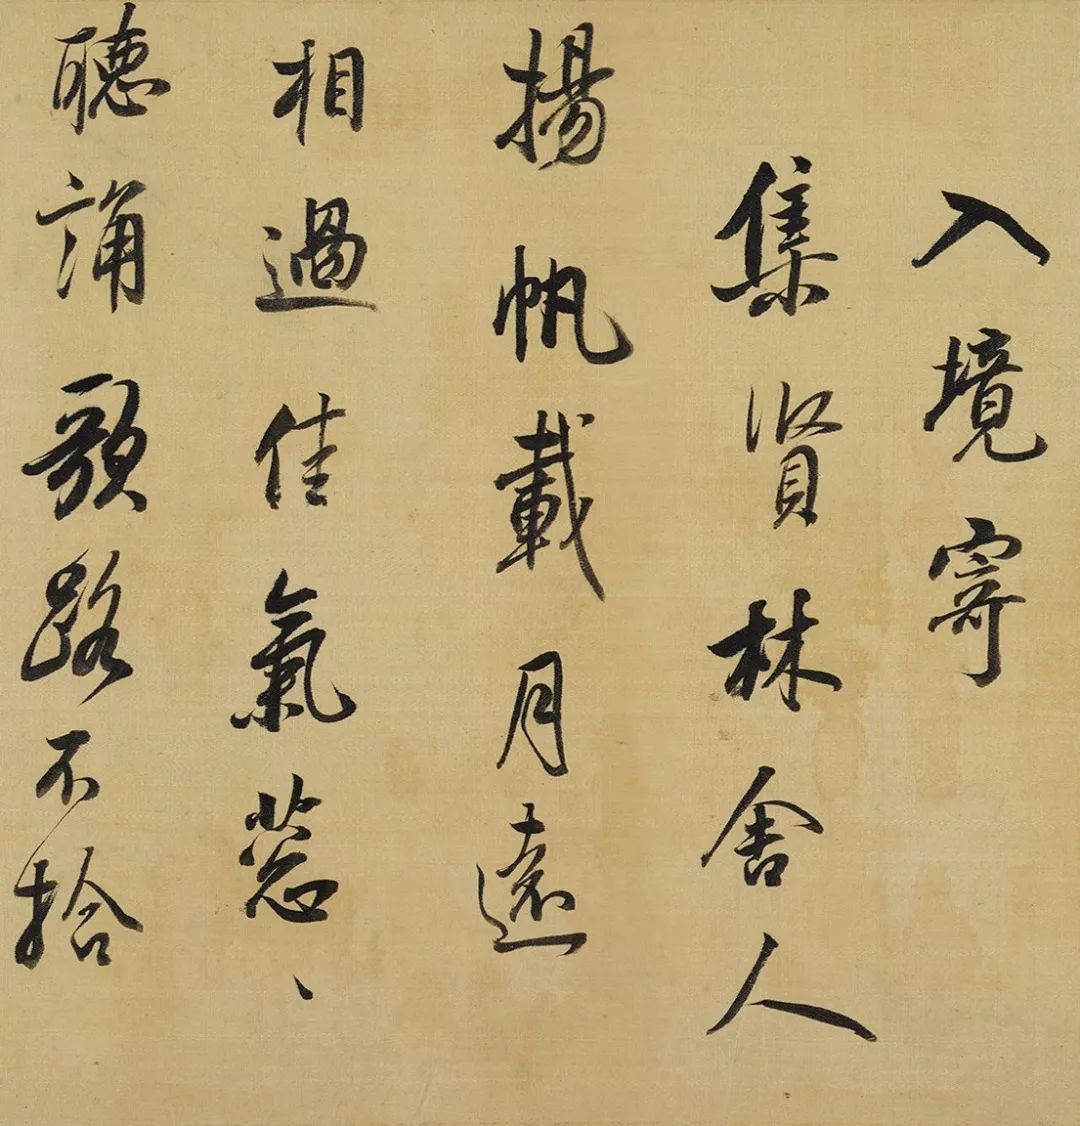 入境寄
集賢林舍人
揚帆載月遠
相過佳氣葱、
聽誦歌路不拾